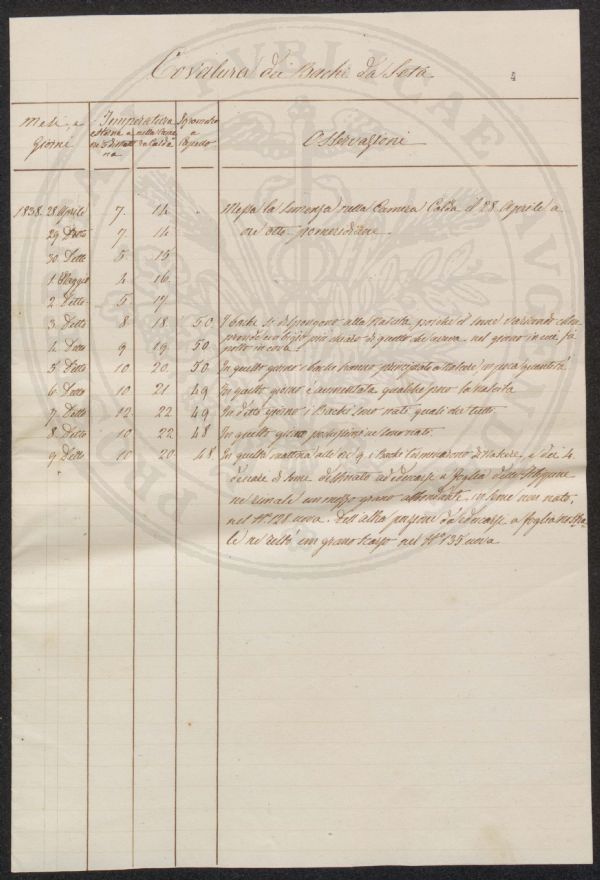 Covatura dei Bachi da Seta
4
Mesi, e Giorni
Temperatura
esterna a
nella Camera Calda
Igrometro a Capello
Osservazioni
1838. 28 Aprile 7. 14 Messa la Semenza nella Camera Calda il 28 Aprile a
29 Detto 7 14 ore otto pomeridiane.
30 Detto 5 15
1. Maggio 4 16.
2. Detto 5 17
3. Detto 8 18 50 I bachi si dispongono alla nascita, poiché il seme
4. Detto 9 19 50 più chiaro di quello che aveva nel giorno in cui fu posto in cova
5 Detto 10 20. 50 In questo giorno i bachi hanno principiato a nascere in poca quantità
6 Detto 10 21 49 In questo giorno è aumentata qualche poco la nascita
7. Detto 12 22 49 In detto giorno i Bachi sono nati quasi del tutto.
8. Detto 10 22 48 In questo giorno nati.
9 Detto 10 20 48 In questa mattina alle ore 9 i Bachi terminarono di nascere, e dei 4
denari di seme destinato ad educarsi a foglia delle Filippine
ne rimase un mezzo grano abbondante in seme non nato,
nel N° 128 uova. Dell'altra porzione da educarsi a foglia nostra-
le ne restò un grano scarso nel N° 135 uova.
PUBLICAE